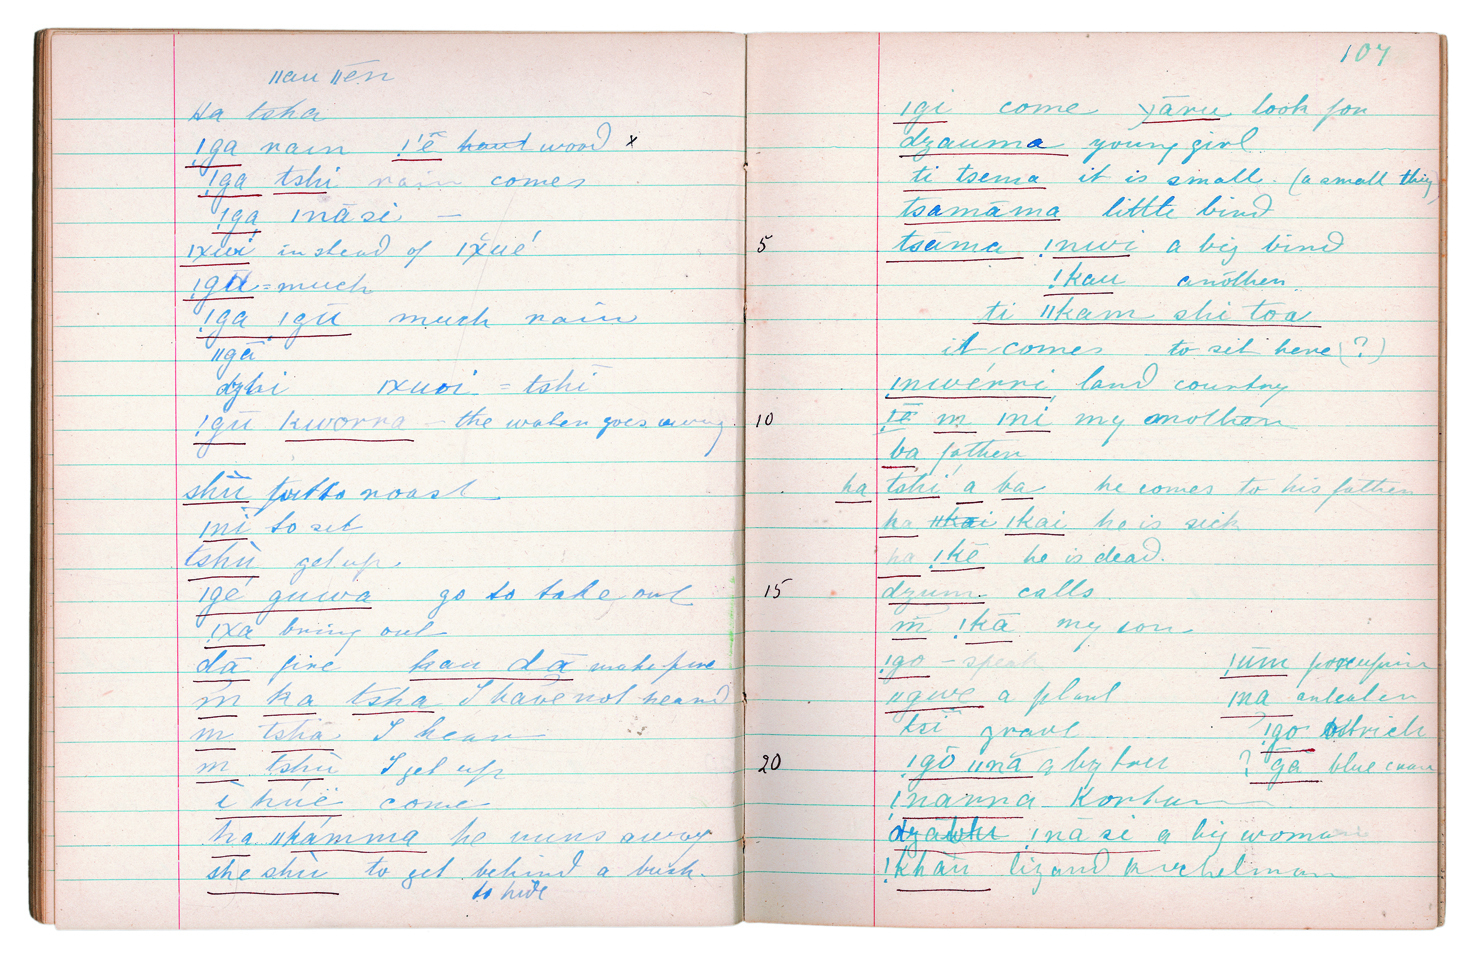 ǁau ǁēn
Ha tsha
!ga rain !'ē̃ haut wood x
!ga tshi rain comes
!ga ǀnāsi —
ǀxwi instead of ǀx̌ué
!gū = much
!ga !gū much rain
ǁgā
dzhi ǀxuoi = tshī
!gū kworra – the water goes away
shùi to roast
mì to sit
tshù get up
ǀgé guwa go to take out
!xa bring out
dā fire kau dā make fire
m̄ ka tsha I have not heard
m tshā I hear
m tshù I get up
ī húë come
ha ǁkámma he runs away
she shù to get behind a bush.
to hide
107
ǀgi come χāru look for
dzauma young girl.
ti tsema it is small. (a small thing)
tsamāma little bird
5 tsāma !nwi a big bird
!kau another
ti ǁkam shi toa
it comes to sit here (?)
!nwérri land country
10 !ē m mi my mother
ba father
ha tshi á ba he comes to his father
ha ǁkai ǀkai he is sick
ha !kē he is dead.
15 dzum calls
m̄ !kā my son
!go – speak !ūm porcupine
ǁgwe a plant ma anteater
tsī grave !go ostrich
20 !gō ǁnā a by tree ? ga blue crane
!nanna Korhan
!nāsi a big woman
!khāù lizard